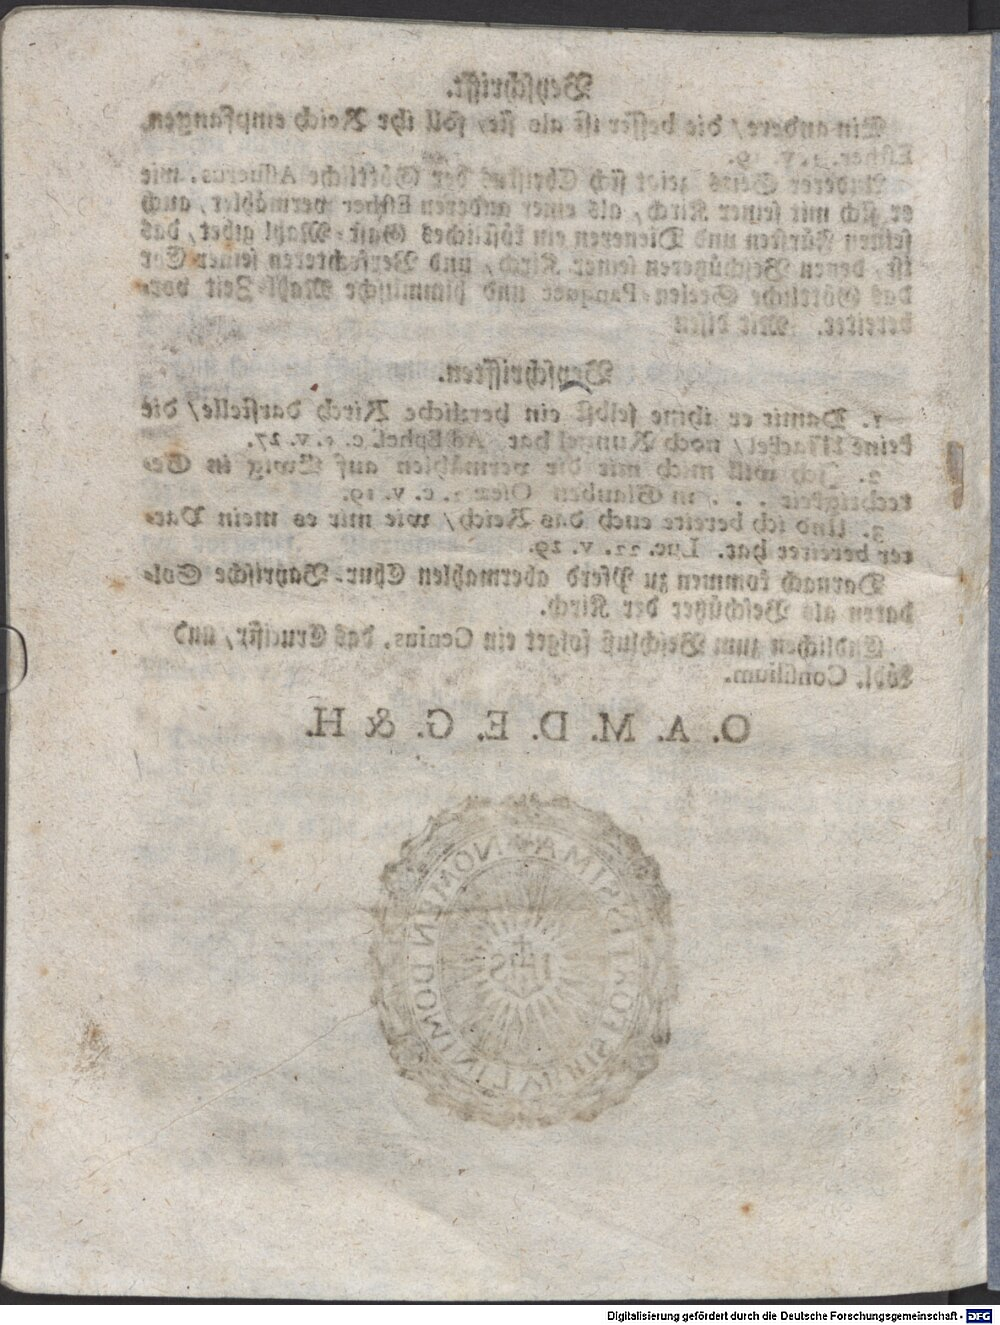 Beyschrifft.
Ein andere / die besser ist als sie, soll ihr Reich empfangen,
Esther. 1. v. 19.
Anderer Seits zeigt sich Christus der Göttliche Assuerus, wie
er sich mit seiner Kirch, als einer anderen Esther vermählet, auch
seinen Fürsten und Dieneren ein köstliches Gast-Mahl gibet, das
ist, denen Beschützeren seiner Kirch, und Verfechteren seiner Ehr
das Göttliche Seelen-Panquet und himmlische Mahl-Zeit vor-
bereitet. Mit dissen
Beyschrifften.
1. Damit er ihme selbst ein herzliche Kirch darstelle / die
keine Mackel / noch Runzel hat Ad Ephes. c. 5. v. 27.
2. Ich will mich mit dir vermählen auf Ewig in Ge-
rechtigkeit . . . in Glauben Oseæ 2. c. v. 19.
3. Und ich bereite euch das Reich / wie mir es mein Vat-
ter bereitet hat. Luc. 22. v. 29.
Darnach kommen zu Pferd abermahlen Chur-Bayrische Sol-
daten als Beschützer der Kirch.
Endlichen zum Beschluß folget ein Genius, das Crucifix, und
Löbl. Consilium.
O. A. M. D. E. G. & H.
NOMEN DOMINI TURRIS FORTISSIMA
IHS
Digitalisierung gefördert durch die Deutsche Forschungsgemeinschaft - DFG